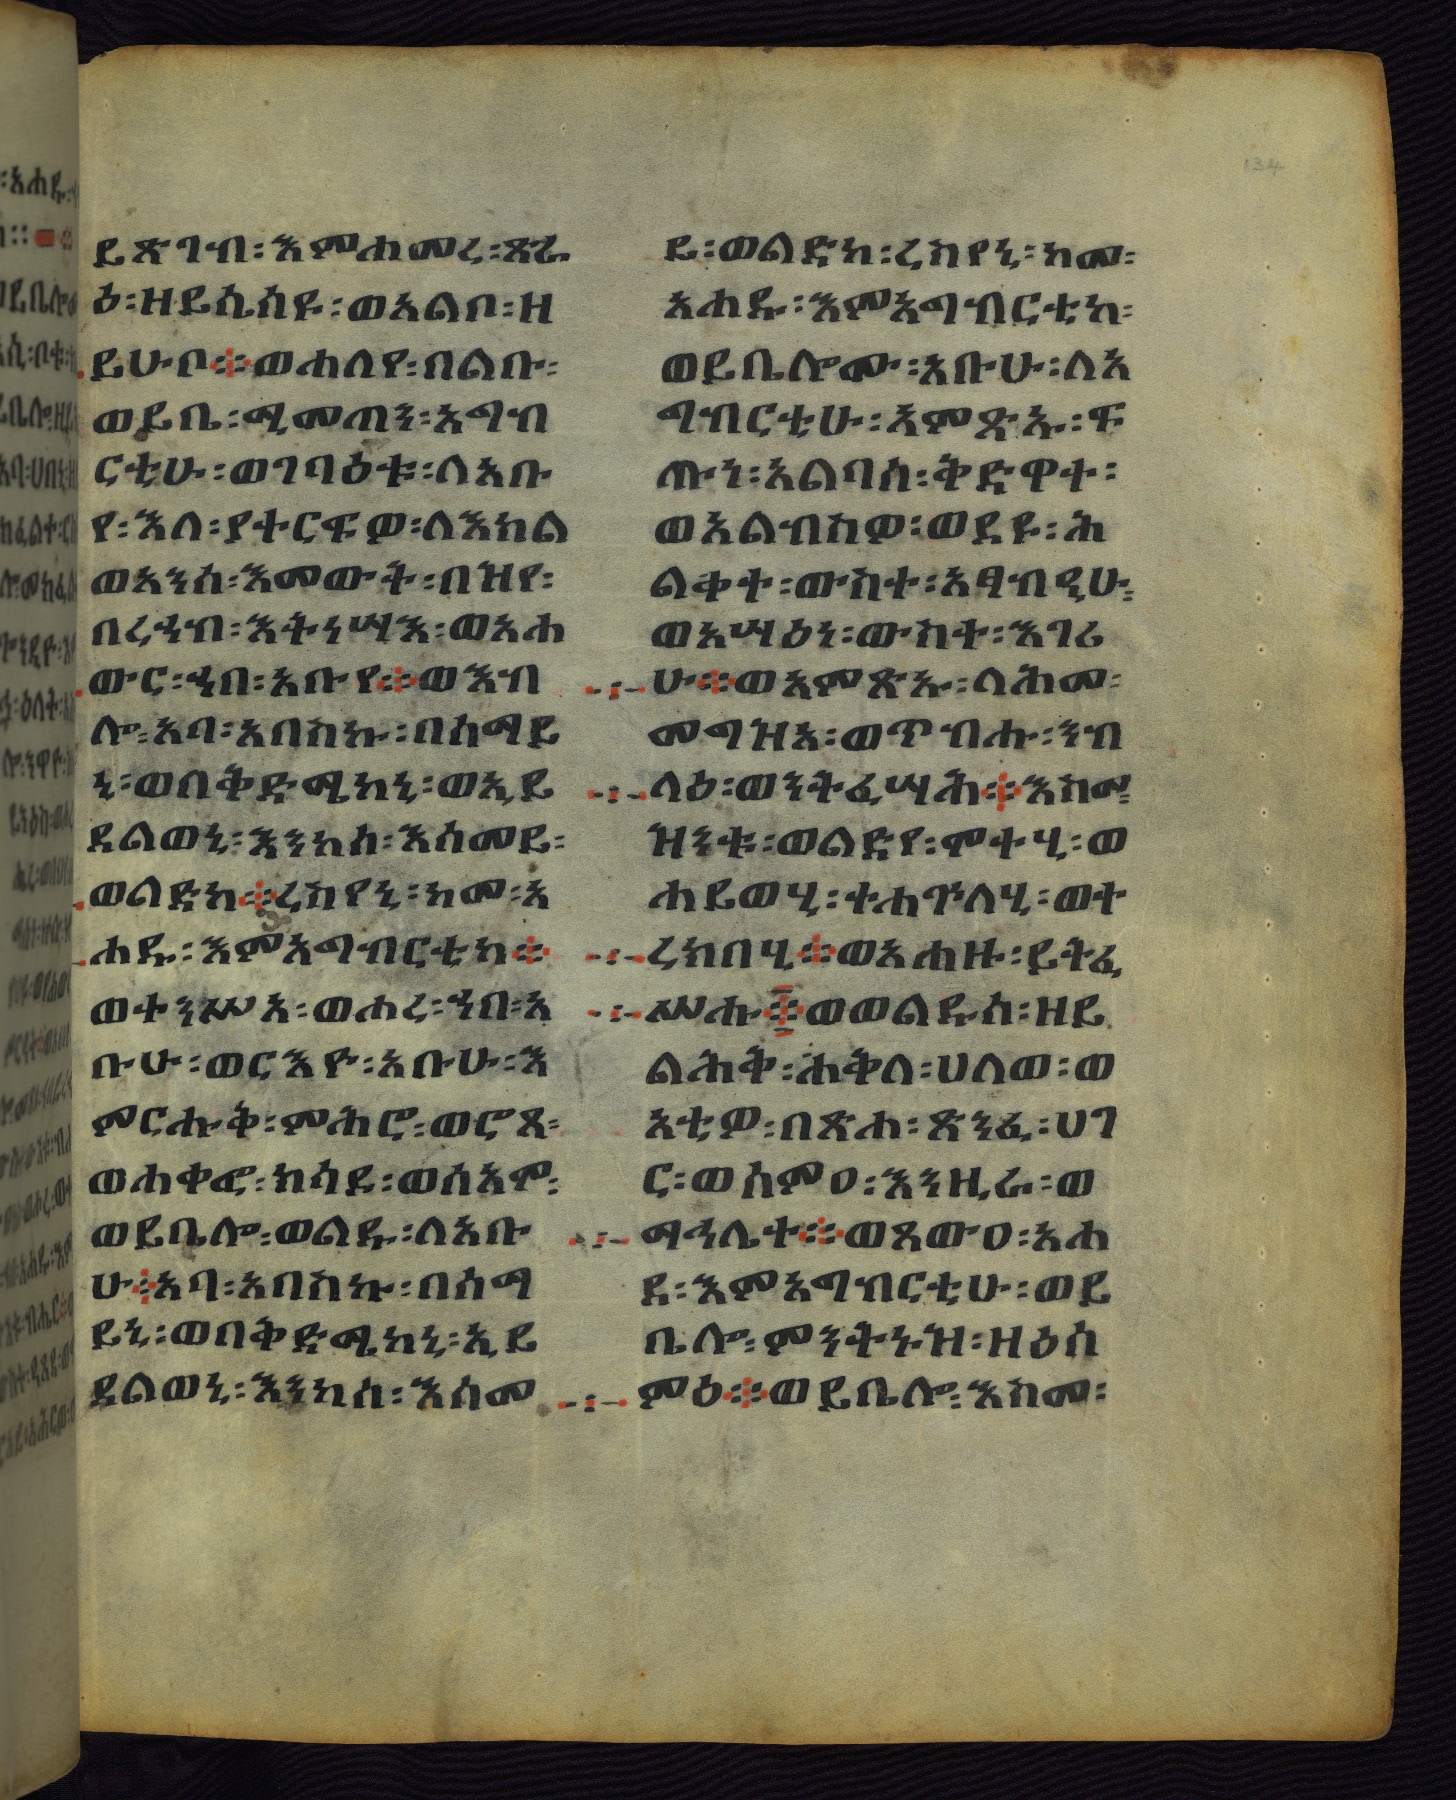 ይጽገብ፡እምሐመረ፡ጸራ
ዕ፡ዘይሴሰዩ፡ወአልቦ፡ዘ
ይሁቦ፨ወሐለየ፡በልቡ፡
ወይቤ፡ሚመጠን፡አግብ
ርቲሁ፡ወገባዕቱ፡ለአቡ
የ፡እለ፡ያተርፍዎ፡ለእክል
ወአንሰ፡እመውት፡በዝየ፡
በረኃብ፡እትነሣእ፡ወአሐ
ውር፡ኀበ፡አቡየ፨ወእብ
ሎ፡አባ፡አበስኩ፡በሰማይ
ኒ፡ወበቅድሜከኒ፡ወኢይ
ደልወኒ፡እንከሰ፡እሰመይ፡
ወልድከ፨ረስየኒ፡ከመ፡አ
ሐዱ፡እምአግብርቲከ፨
ወተንሥአ፡ወሐረ፡ኀበ፡አ
ቡሁ፡ወርእዮ፡አቡሁ፡እ
ምርሑቅ፡ምሕሮ፡ወሮጸ፡
ወሐቀፎ፡ክሳዶ፡ወሰአሞ፡
ወይቤሎ፡ወልዱ፡ለአቡ
ሁ፨አባ፡አበስኩ፡በሰማ
ይኒ፡ወበቅድሜከኒ፡ኢይ
ደልወኒ፡እንከሰ፡እሰመ
ይ፡ወልድከ፡ረስየኒ፡ከመ፡
አሐዱ፡እምአግብርቲከ፡
ወይቤሎሙ፡አቡሁ፡ለአ
ግብርቲሁ፡አምጽኡ፡ፍ
ጡነ፡አልባሰ፡ቅድዋተ፡
ወአልብስዎ፡ወደዩ፡ሕ
ልቀተ፡ውስተ፡አፃብዒሁ፡
ወአሣዕነ፡ውስተ፡እገሪ
ሁ፨ወአምጽኡ፡ላሕመ፡
መግዝአ፡ወጥብሑ፡ንብ
ላዕ፡ወንትፈሣሕ፨እስመ፡
ዝንቱ፡ወልድየ፡ምተ፡ሂ፡ወ
ሐይወሂ፡ተሐጕለሂ፡ወተ
ረክበሂ፨ወአሐዙ፡ይትፈ
ሥሑ፨ወወልዱሰ፡ዘይ
ልሕቅ፡ሐቅለ፡ሀለወ፡ወ
አቲዎ፡በጽሐ፡ጽንፈ፡ሀገ
ር፡ወሰምዐ፡እንዚራ፡ወ
ማኅሌተ፨ወጸውዐ፡አሐ
ደ፡እምአግብርቲሁ፡ወይ
ቤሎ፡ምንትኑዝ፡ዘዕሰ
ምዕ፨ወይቤሎ፡እስመ፡